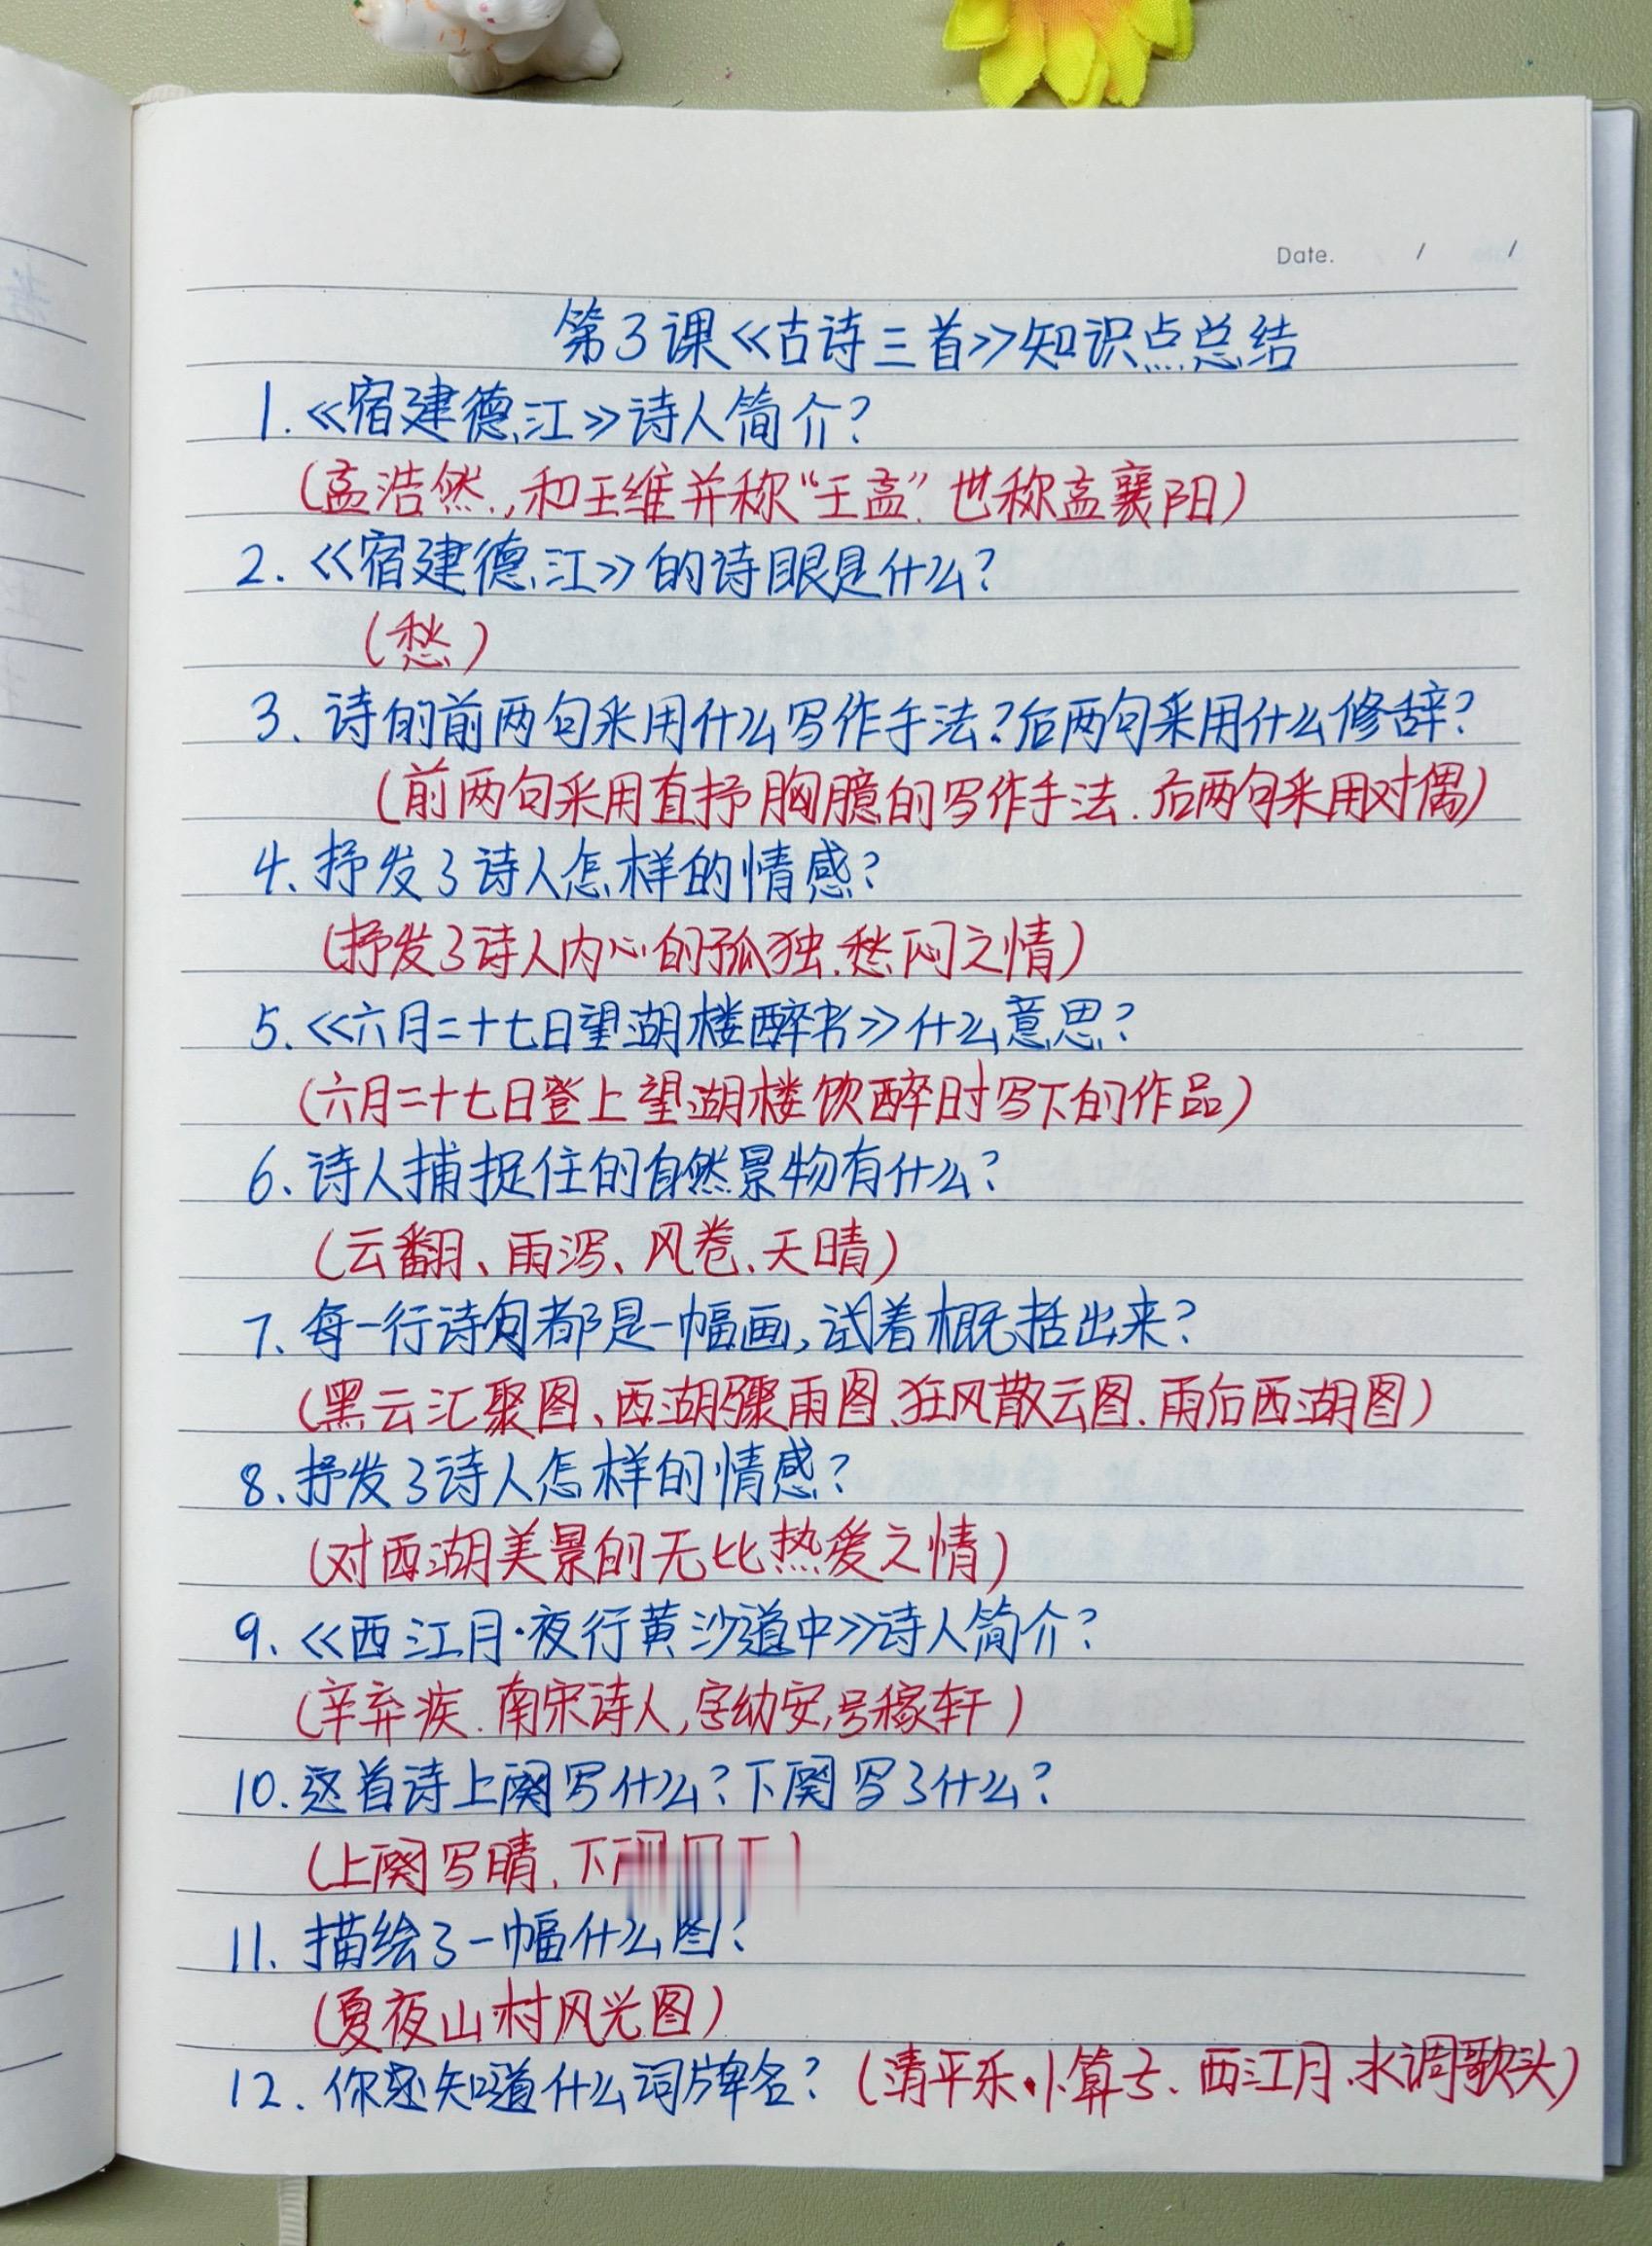 Date. / /
第3课《古诗三首》知识点总结
1.《宿建德江》诗人简介?
(孟浩然,和王维并称“王孟”.世称孟襄阳)
2.《宿建德江》的诗眼是什么?
(愁)
3、诗的前两句采用什么写作手法?后两句采用什么修辞?
(前两句采用直抒胸臆的写作手法.后两句采用对偶)
4、抒发了诗人怎样的情感?
(抒发了诗人内心的孤独.愁闷之情)
5、《六月二十七日望湖楼醉书》什么意思?
(六月二十七日登上望湖楼饮醉时写下的作品)
6、诗人捕捉住的自然景物有什么?
(云翻、雨泻、风卷、天晴)
7、每一行诗句都是一幅画,试着概括出来?
(黑云汇聚图、西湖骤雨图、狂风散云图.雨后西湖图)
8、抒发了诗人怎样的情感?
(对西湖美景的无比热爱之情)
9、《西江月·夜行黄沙道中》诗人简介?
(辛弃疾.南宋诗人,字幼安,号稼轩)
10.这首诗上阕写什么?下阕写了什么?
(上阕写晴.下
11、描绘了一幅什么图?
(夏夜山村风光图)
12、你还知道什么词牌名?(清平乐.卜算子、西江月、水调歌头)